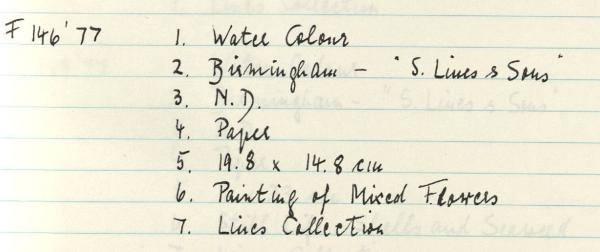 F 146'77 1. Water Colour
2. Birmingham - "S. Lines & Sons"
3. N.D.
4. Paper
5. 19.8 x 14.8 cm
6. Painting of Mixed Flowers
7. Lines Collection